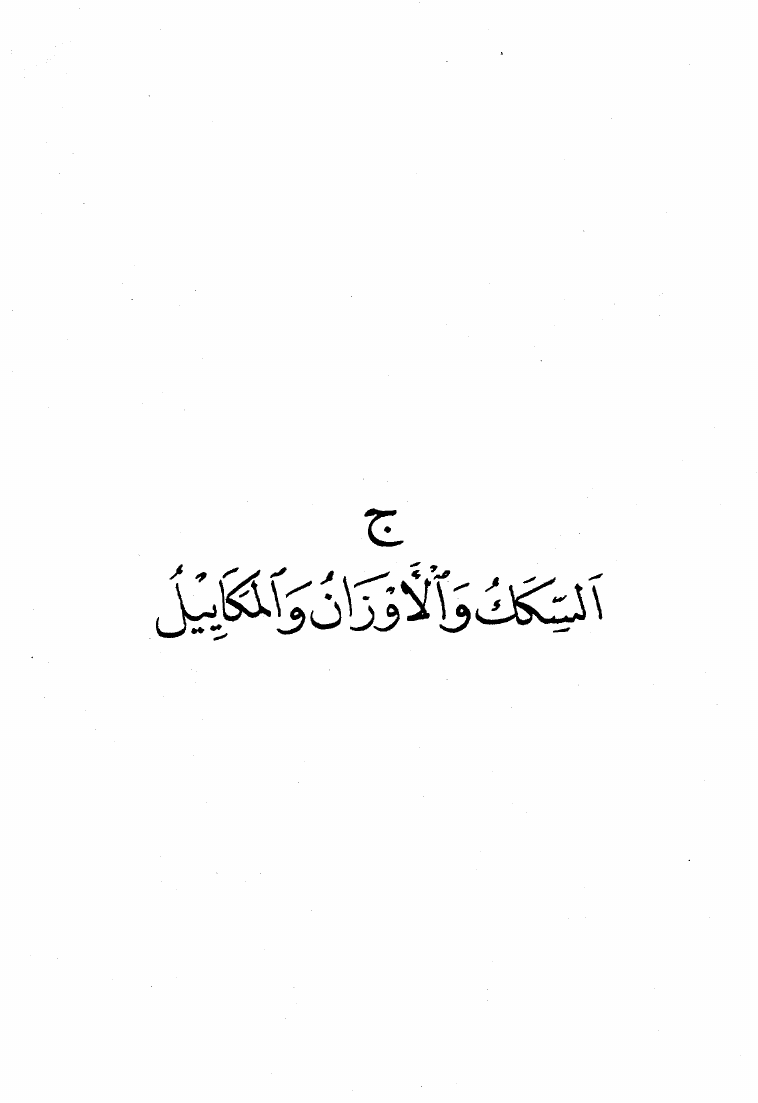 ج
اَلسِّكَكُ وَٱلْأَوْزَانُ وَٱلْمَكَايِيلُ